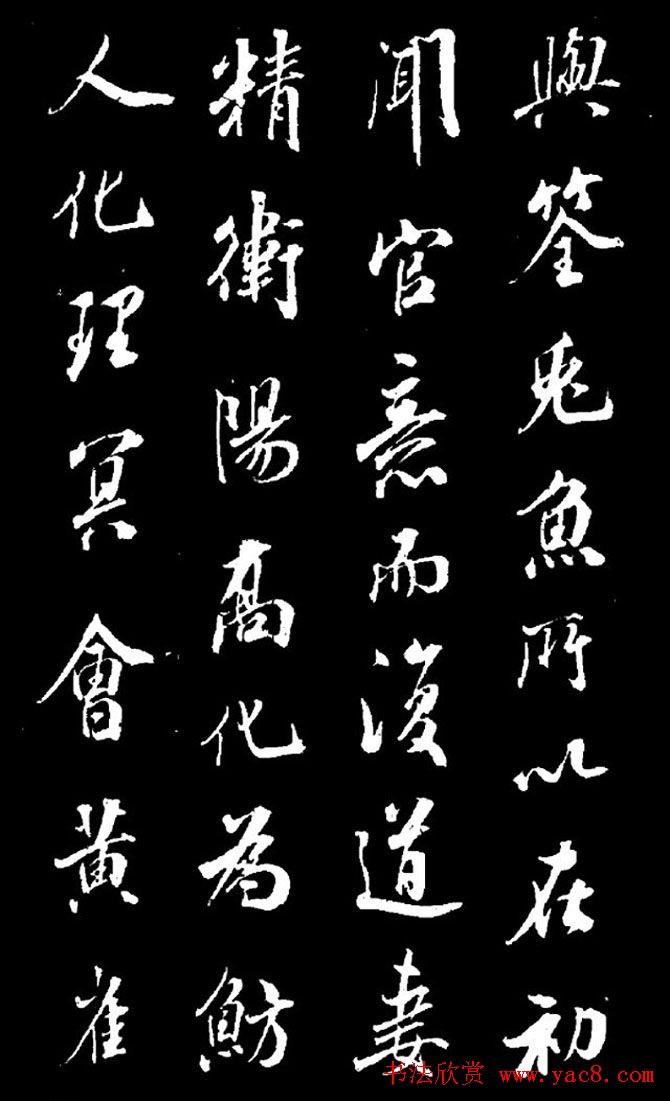 與筌兎魚所以在初
聞官意而復道妻
精衛陽高化為魴
人化理冥會黃雀
书法欣赏 www.yac8.com